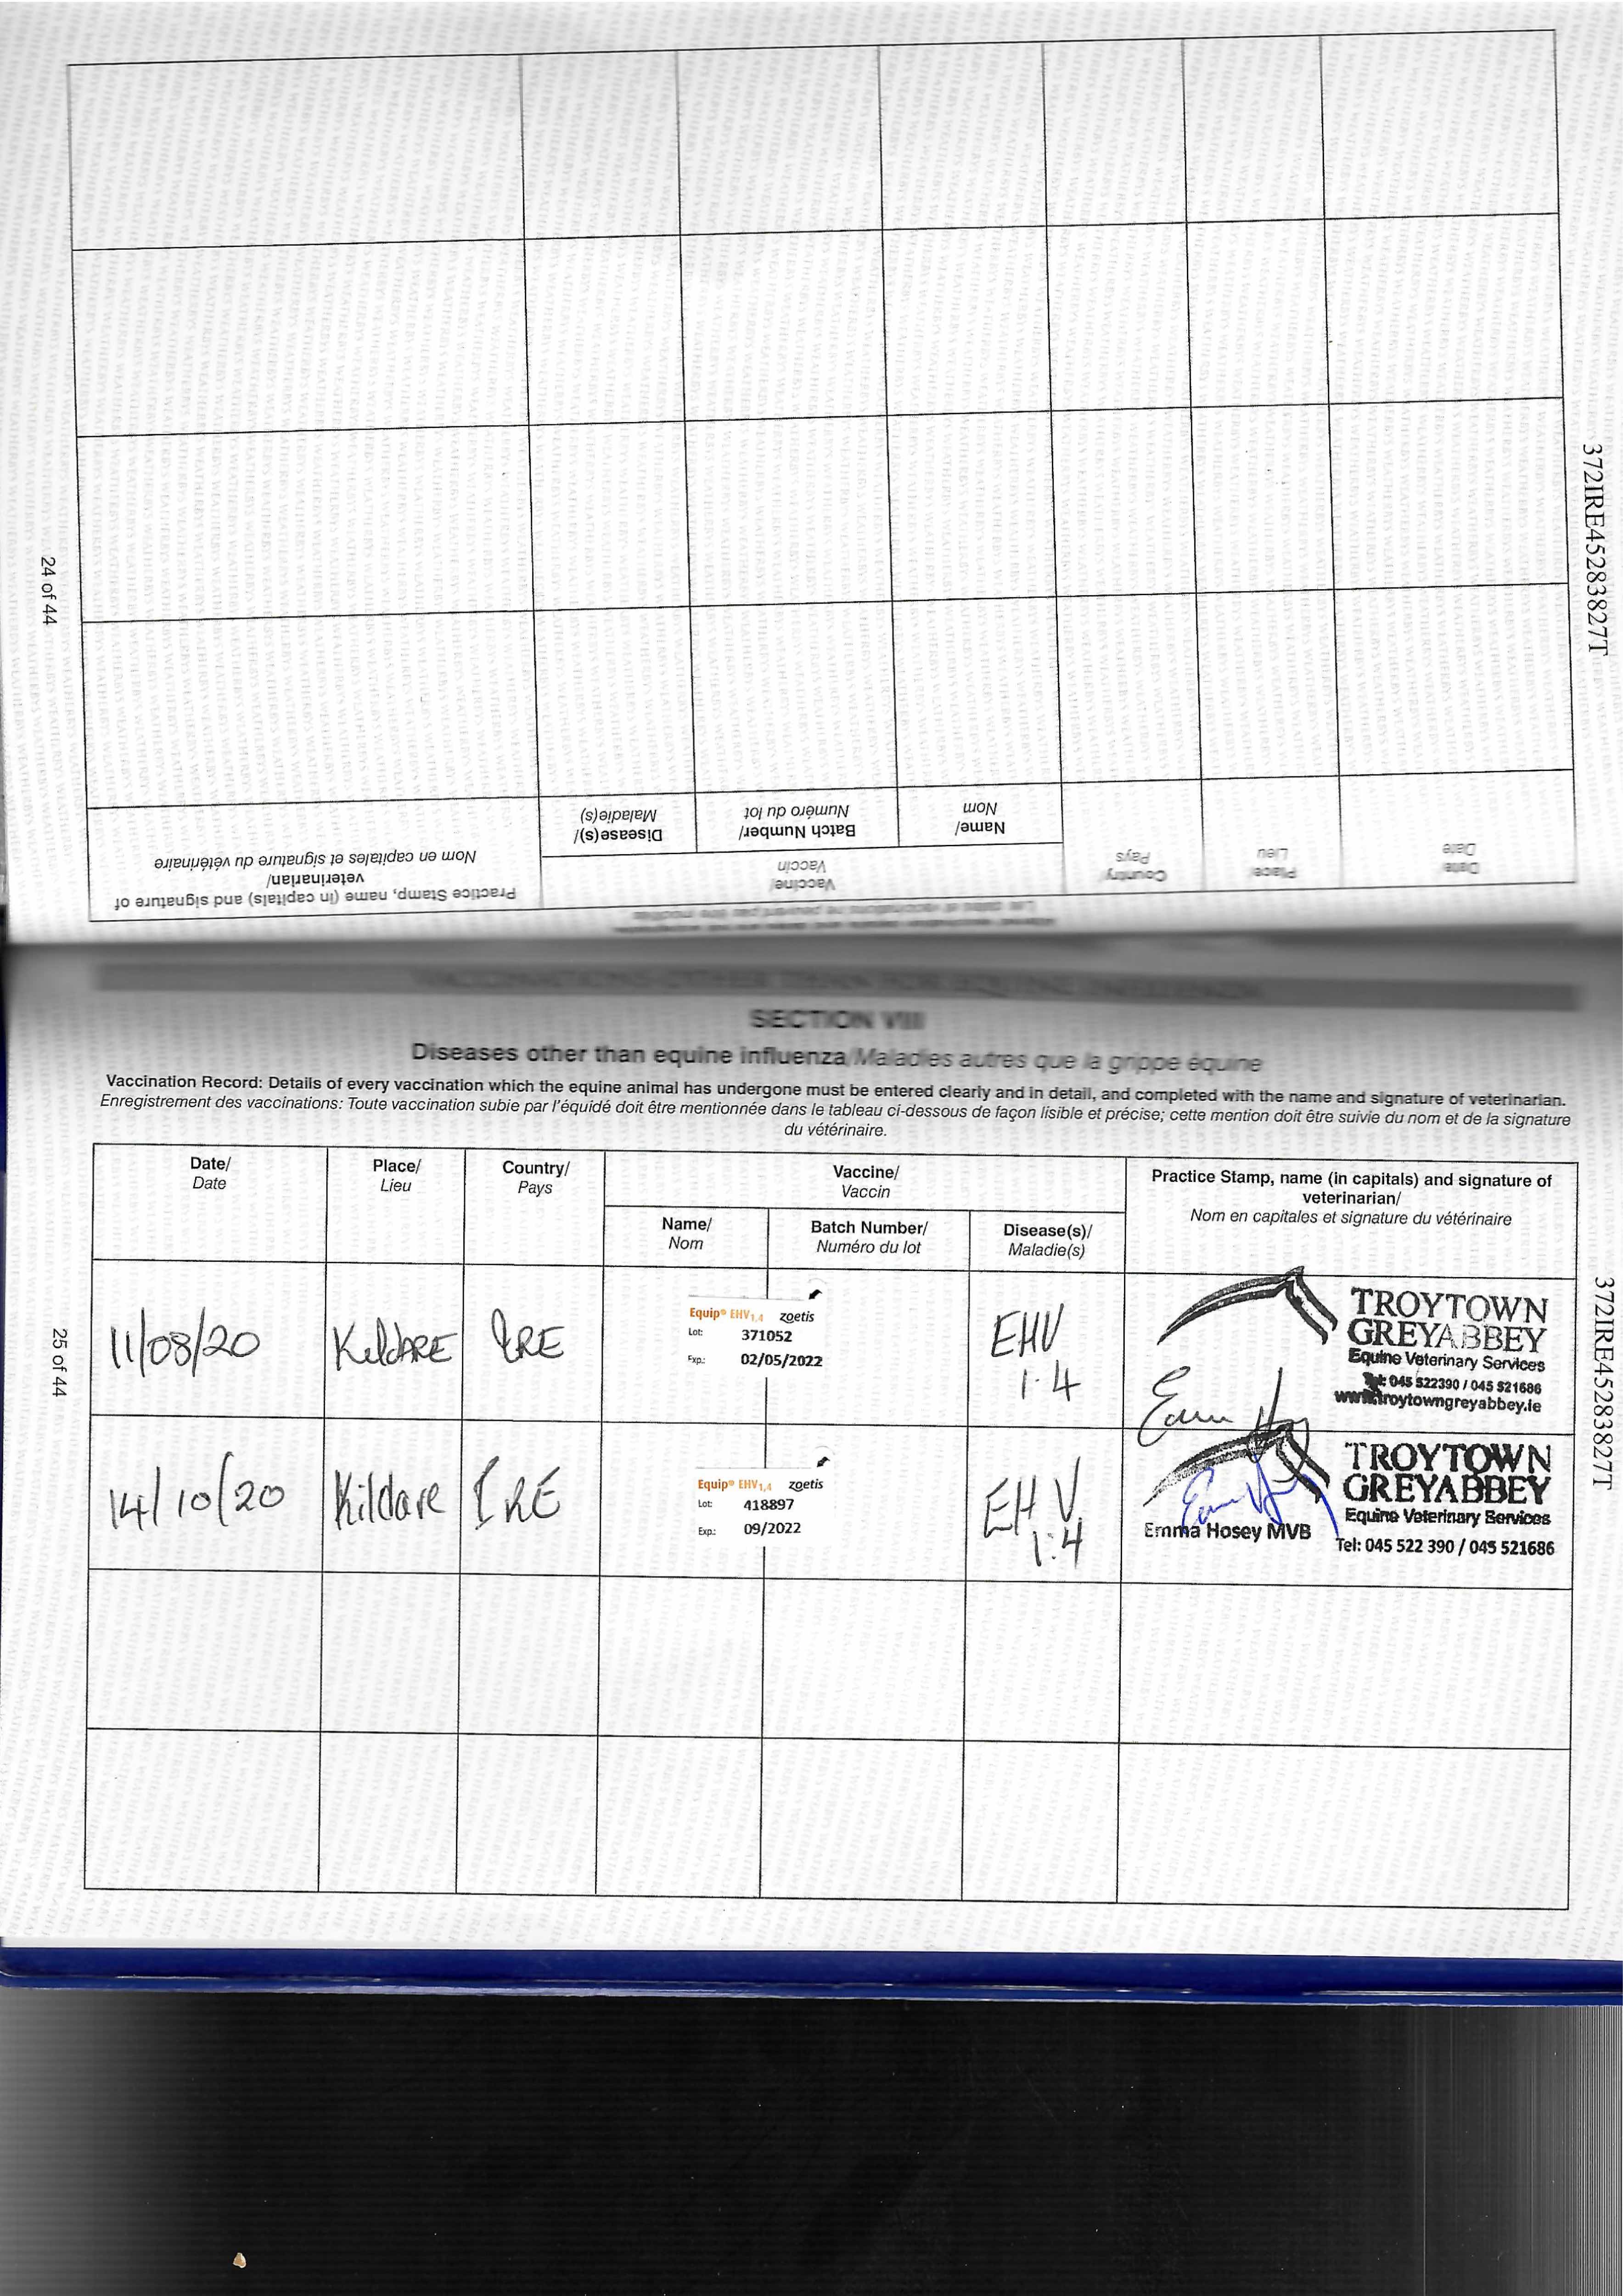 372IRE45283827T
24 of 44
Date/
Date
Place/
Lieu
Country/
Pays
Vaccine/
Vaccin
Name/
Nom
Batch Number/
Numéro du lot
Disease(s)/
Maladie(s)
Practice Stamp, name (in capitals) and signature of
veterinarian/
Nom en capitales et signature du vétérinaire
SECTION VIII
Diseases other than equine influenza/Maladies autres que la grippe équine
Vaccination Record: Details of every vaccination which the equine animal has undergone must be entered clearly and in detail, and completed with the name and signature of veterinarian.
Enregistrement des vaccinations: Toute vaccination subie par l'équidé doit être mentionnée dans le tableau ci-dessous de façon lisible et précise; cette mention doit être suivie du nom et de la signature
du vétérinaire.
Date/
Date
Place/
Lieu
Country/
Pays
Vaccine/
Vaccin
Name/
Nom
Batch Number/
Numéro du lot
Disease(s)/
Maladie(s)
Practice Stamp, name (in capitals) and signature of
veterinarian/
Nom en capitales et signature du vétérinaire
11/08/20
KildARE
IRE
Equip® EHV1,4 zoetis
Lot: 371052
Exp.: 02/05/2022
EHV
1·4
TROYTOWN
GREYABBEY
Equine Veterinary Services
Tel: 045 522390 / 045 521686
www.troytowngreyabbey.ie
14/10/20
Kildare
IRE
Equip® EHV1,4 zoetis
Lot: 418897
Exp.: 09/2022
EHV
1:4
TROYTOWN
GREYABBEY
Equine Veterinary Services
Emma Hosey MVB
Tel: 045 522 390 / 045 521686
25 of 44
372IRE45283827T